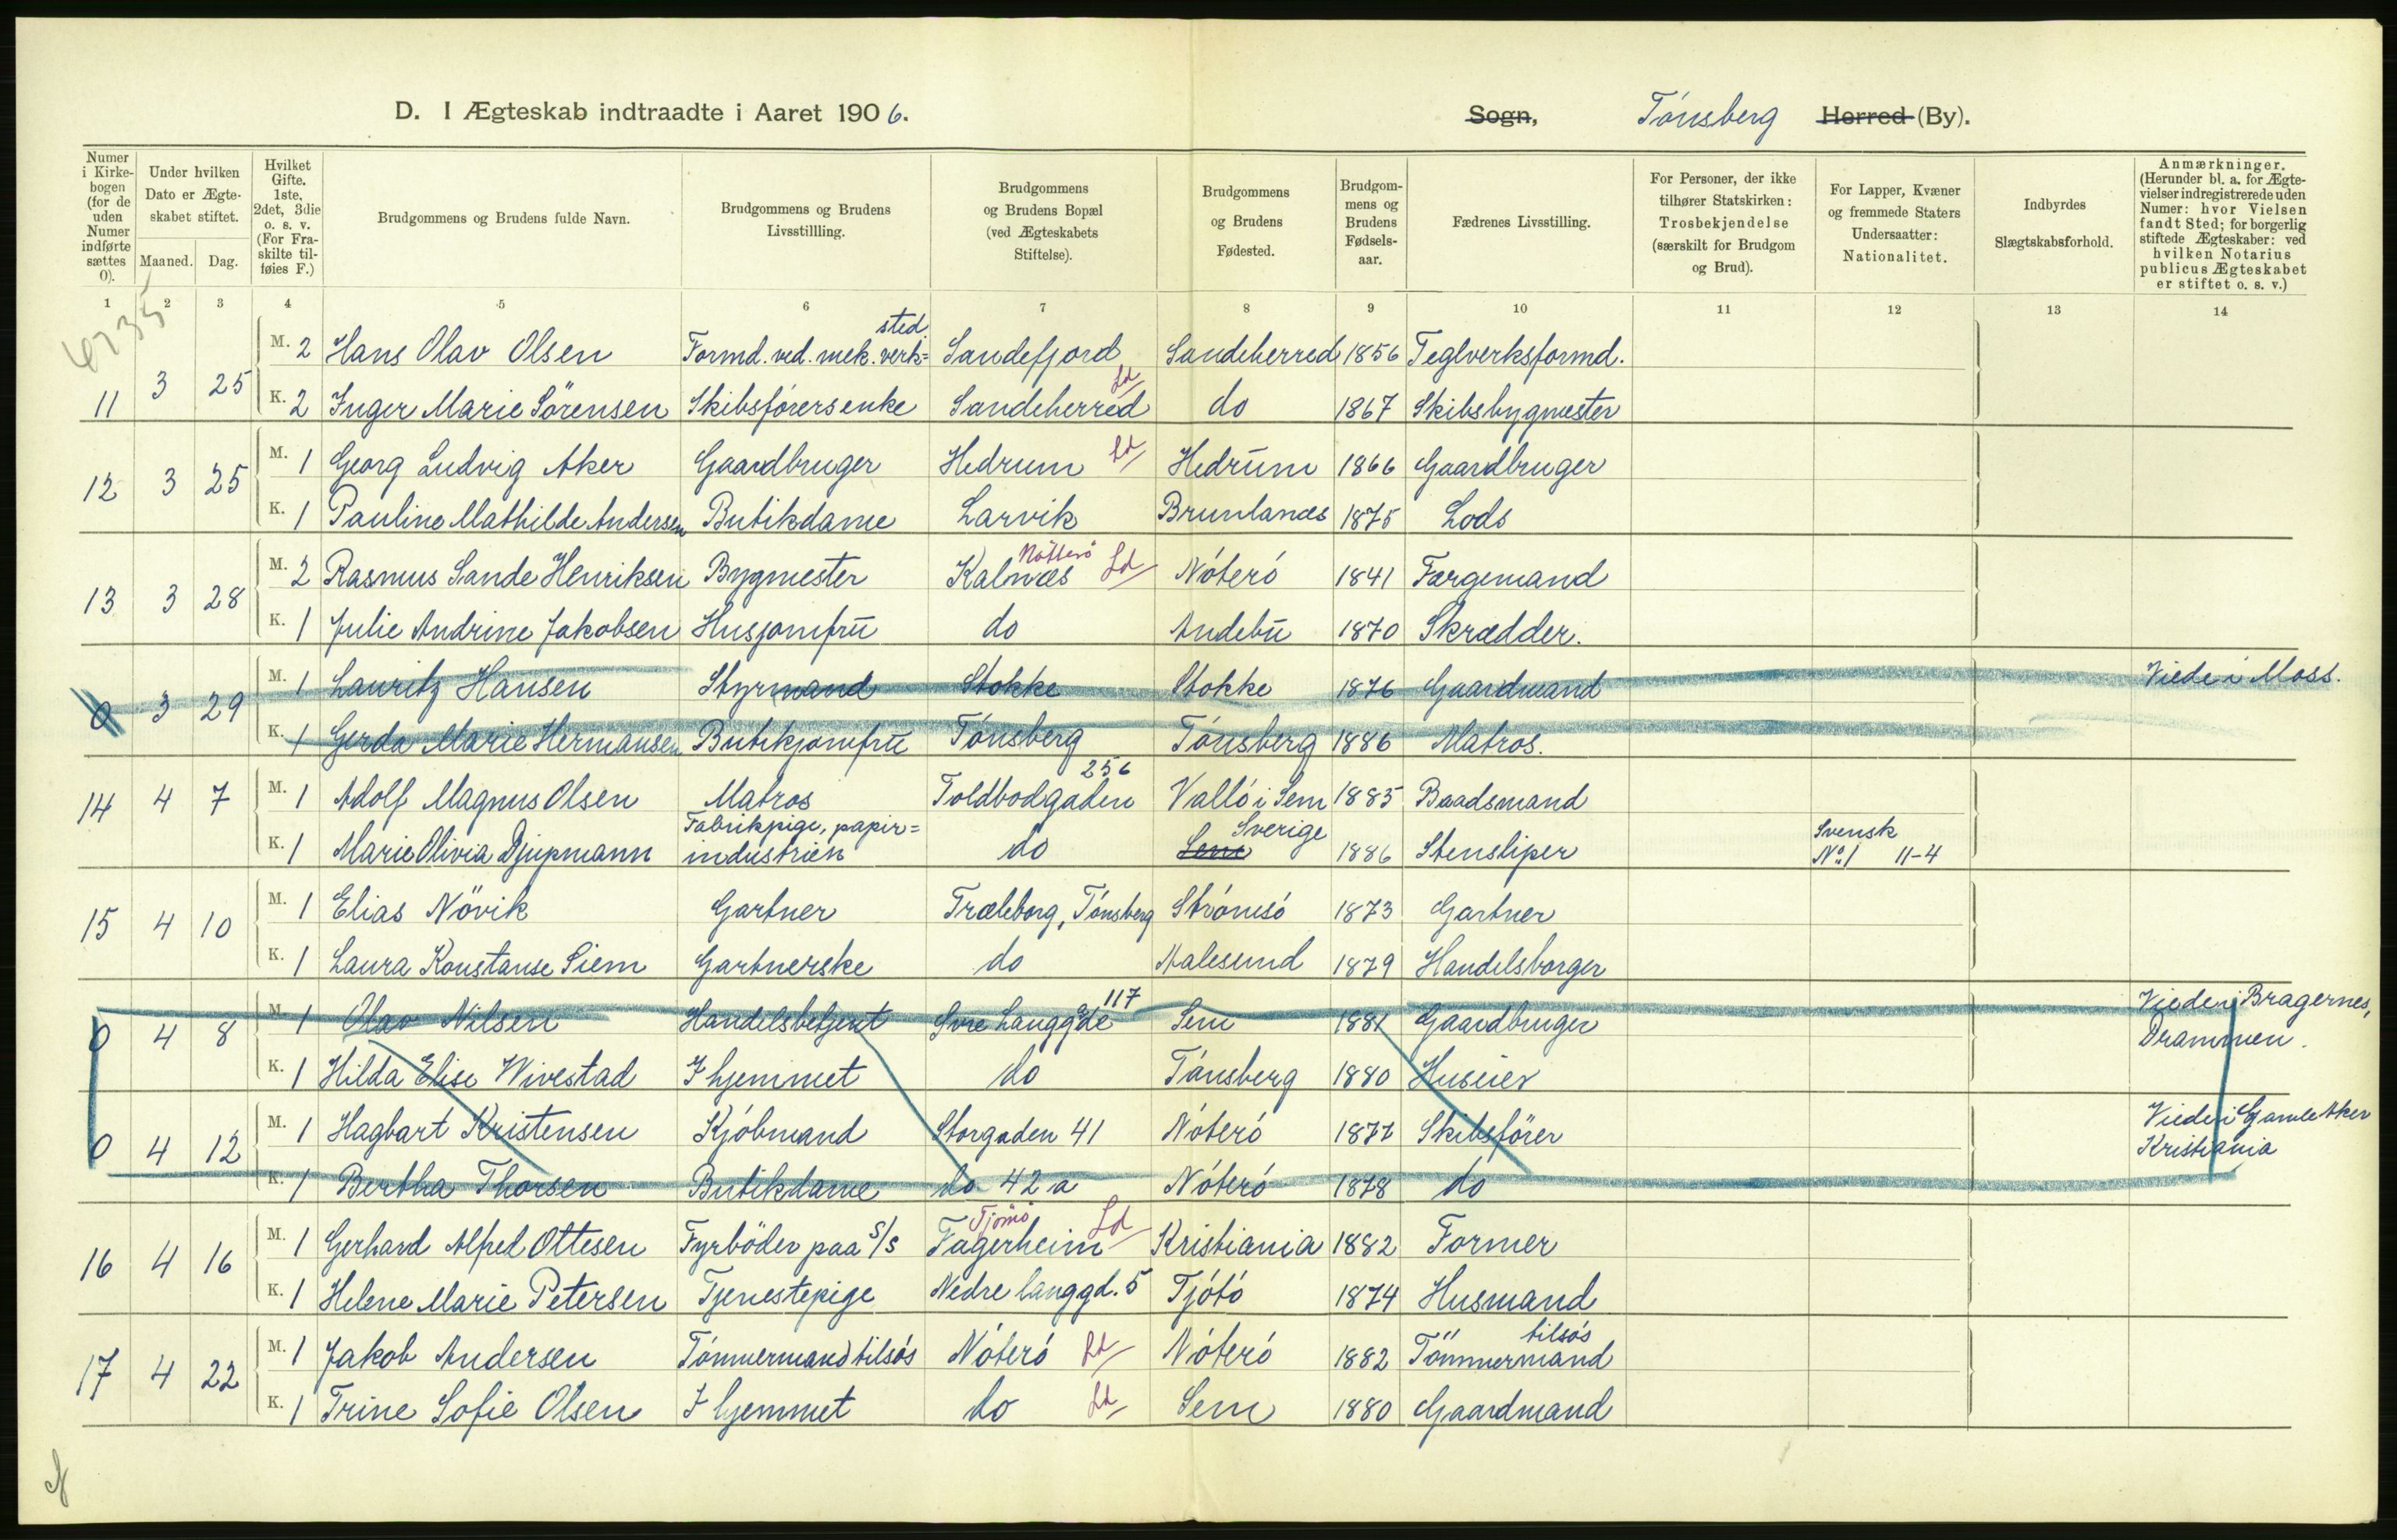 D. I Ægteskab indtraadte i Aaret 1906.
Sogn, Tönsberg Herred (By).
Numer i Kirkebogen (for de uden Numer indførte sættes 0).
Under hvilken Dato er Ægteskabet stiftet.
Maaned. Dag.
Hvilket Gifte. 1ste, 2det, 3die o. s. v. (For Fraskilte tilføies F.)
Brudgommens og Brudens fulde Navn.
Brudgommens og Brudens Livsstillling.
Brudgommens og Brudens Bopæl (ved Ægteskabets Stiftelse).
Brudgommens og Brudens Fødested.
Brudgommens og Brudens Fødselsaar.
Fædrenes Livsstilling.
For Personer, der ikke tilhører Statskirken: Trosbekjendelse (særskilt for Brudgom og Brud).
For Lapper, Kvæner og fremmede Staters Undersaatter: Nationalitet.
Indbyrdes Slægtskabsforhold.
Anmærkninger. (Herunder bl. a. for Ægtevielser indregistrerede uden Numer: hvor Vielsen fandt Sted; for borgerlig stiftede Ægteskaber: ved hvilken Notarius publicus Ægteskabet er stiftet o. s. v.)
1 2 3 4 5 6 7 8 9 10 11 12 13 14
M. 2 Hans Olav Olsen Formd. ved. mek. verk=sted Sandefjord Sandeherred 1856 Teglverksformd.
11 3 25
K. 2 Inger Marie Sörensen Skibsförersenke Sandeherred Ld do 1867 Skibsbygmester
M. 1 Georg Ludvig Aker Gaardbruger Hedrum Ld Hedrum 1866 Gaardbruger
12 3 25
K. 1 Pauline Mathilde Andersen Butikdame Larvik Brunlanæs 1875 Lods
M. 2 Rasmus Sande Henriksen Bygmester Kalnæs Nötterö Ld Nöterö 1841 Færgemand
13 3 28
K. 1 Julie Andrine Jakobsen Husjomfru do Andebu 1870 Skrædder.
M. 1 Lauritz Hansen Styrmand Stokke Stokke 1876 Gaardmand Viede i Moss.
0 3 29
K. 1 Gerda Marie Hermansen Butikjomfru Tönsberg Tönsberg 1886 Matros.
M. 1 Adolf Magnus Olsen Matros Toldbodgaden 256 Vallö i Sem 1885 Baadsmand
14 4 7
K. 1 Marie Olivia Djupmann Fabrikpige, papir=industrien do Sem Sverige 1886 Stensliper Svensk No. 1 11-4
M. 1 Elias Növik Gartner Træleborg, Tönsberg Strömsö 1873 Gartner
15 4 10
K. 1 Laura Konstanse Siem Gartnerske do Aalesund 1879 Handelsborger
M. 1 Olav Nilsen Handelsbetjent Svre Langgde 117 Sem 1881 Gaardbruger Viede i Bragernes, Drammen.
0 4 8
K. 1 Hilda Elise Wivestad I hjemmet do Tönsberg 1880 Huseier
M. 1 Hagbart Kristensen Kjöbmand Storgaden 41 Nöterö 1877 Skibsförer Viede i Gamle Aker Kristiania
0 4 12
K. 1 Bertha Thorsen Butikdame do 42 a Nöterö 1878 do
M. 1 Gerhard Alfred Ottesen Fyrböder paa S/S Fagerheim Tjömö Ld Kristiania 1882 Former
16 4 16
K. 1 Helene Marie Petersen Tjenestepige Nedre langgd. 5 Tjötö 1874 Husmand
M. 1 Jakob Andersen Tömmermand tilsös Nöterö Ld Nöterö 1882 Tömmermand tilsös
17 4 22
K. 1 Trine Sofie Olsen I hjemmet do Ld Sem 1880 Gaardmand